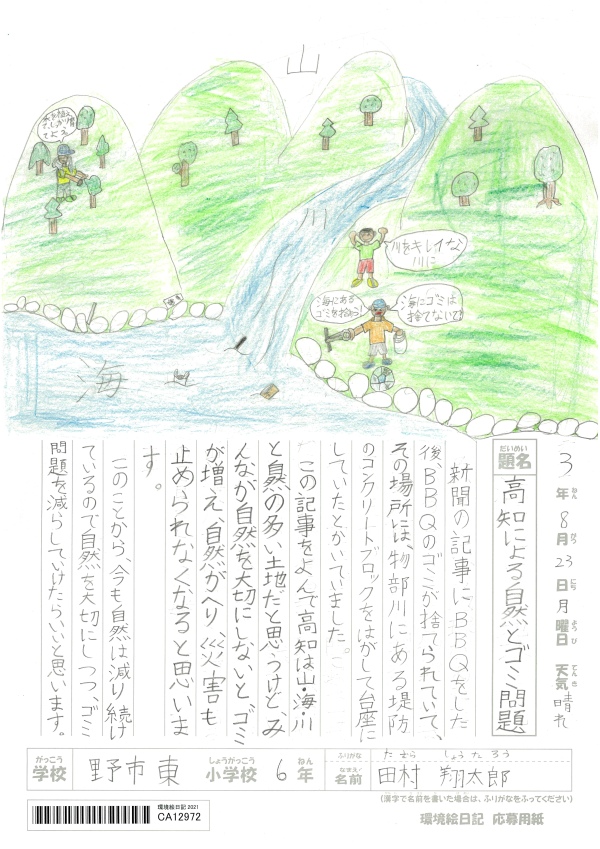 山
木を植えて、しっかり育てよう
川
川をキレイな川に
海にあるゴミを拾おう!
海にゴミは捨てないで!
海
3年8月23日月曜日 天気晴れ
ねん がつ にち ようび てんき
だいめい
題名
高知による自然とゴミ問題
新聞の記事にBBQをした
後、BBQのゴミが捨てられていて、
その場所には、物部川にある堤防
のコンクリートブロックをはがして台座に
していたとかいていました。
この記事をよんで高知は山・海・川
と自然の多い土地だと思うけど、み
んなが自然を大切にしないとゴミ
が増え、自然がへり、災害も
止められなくなると思いま
す。
このことから、今も自然は減り続け
ているので自然を大切にしつつ、ゴミ
問題を減らしていけたらいいと思います。
がっこう しょうがっこう ねん
学校 野市東 小学校 6年
ふりがな たむら しょうたろう
なまえ
名前 田村 翔太郎
(漢字で名前を書いた場合は、ふりがなをふってください)
環境絵日記 応募用紙
環境絵日記 2021
CA12972